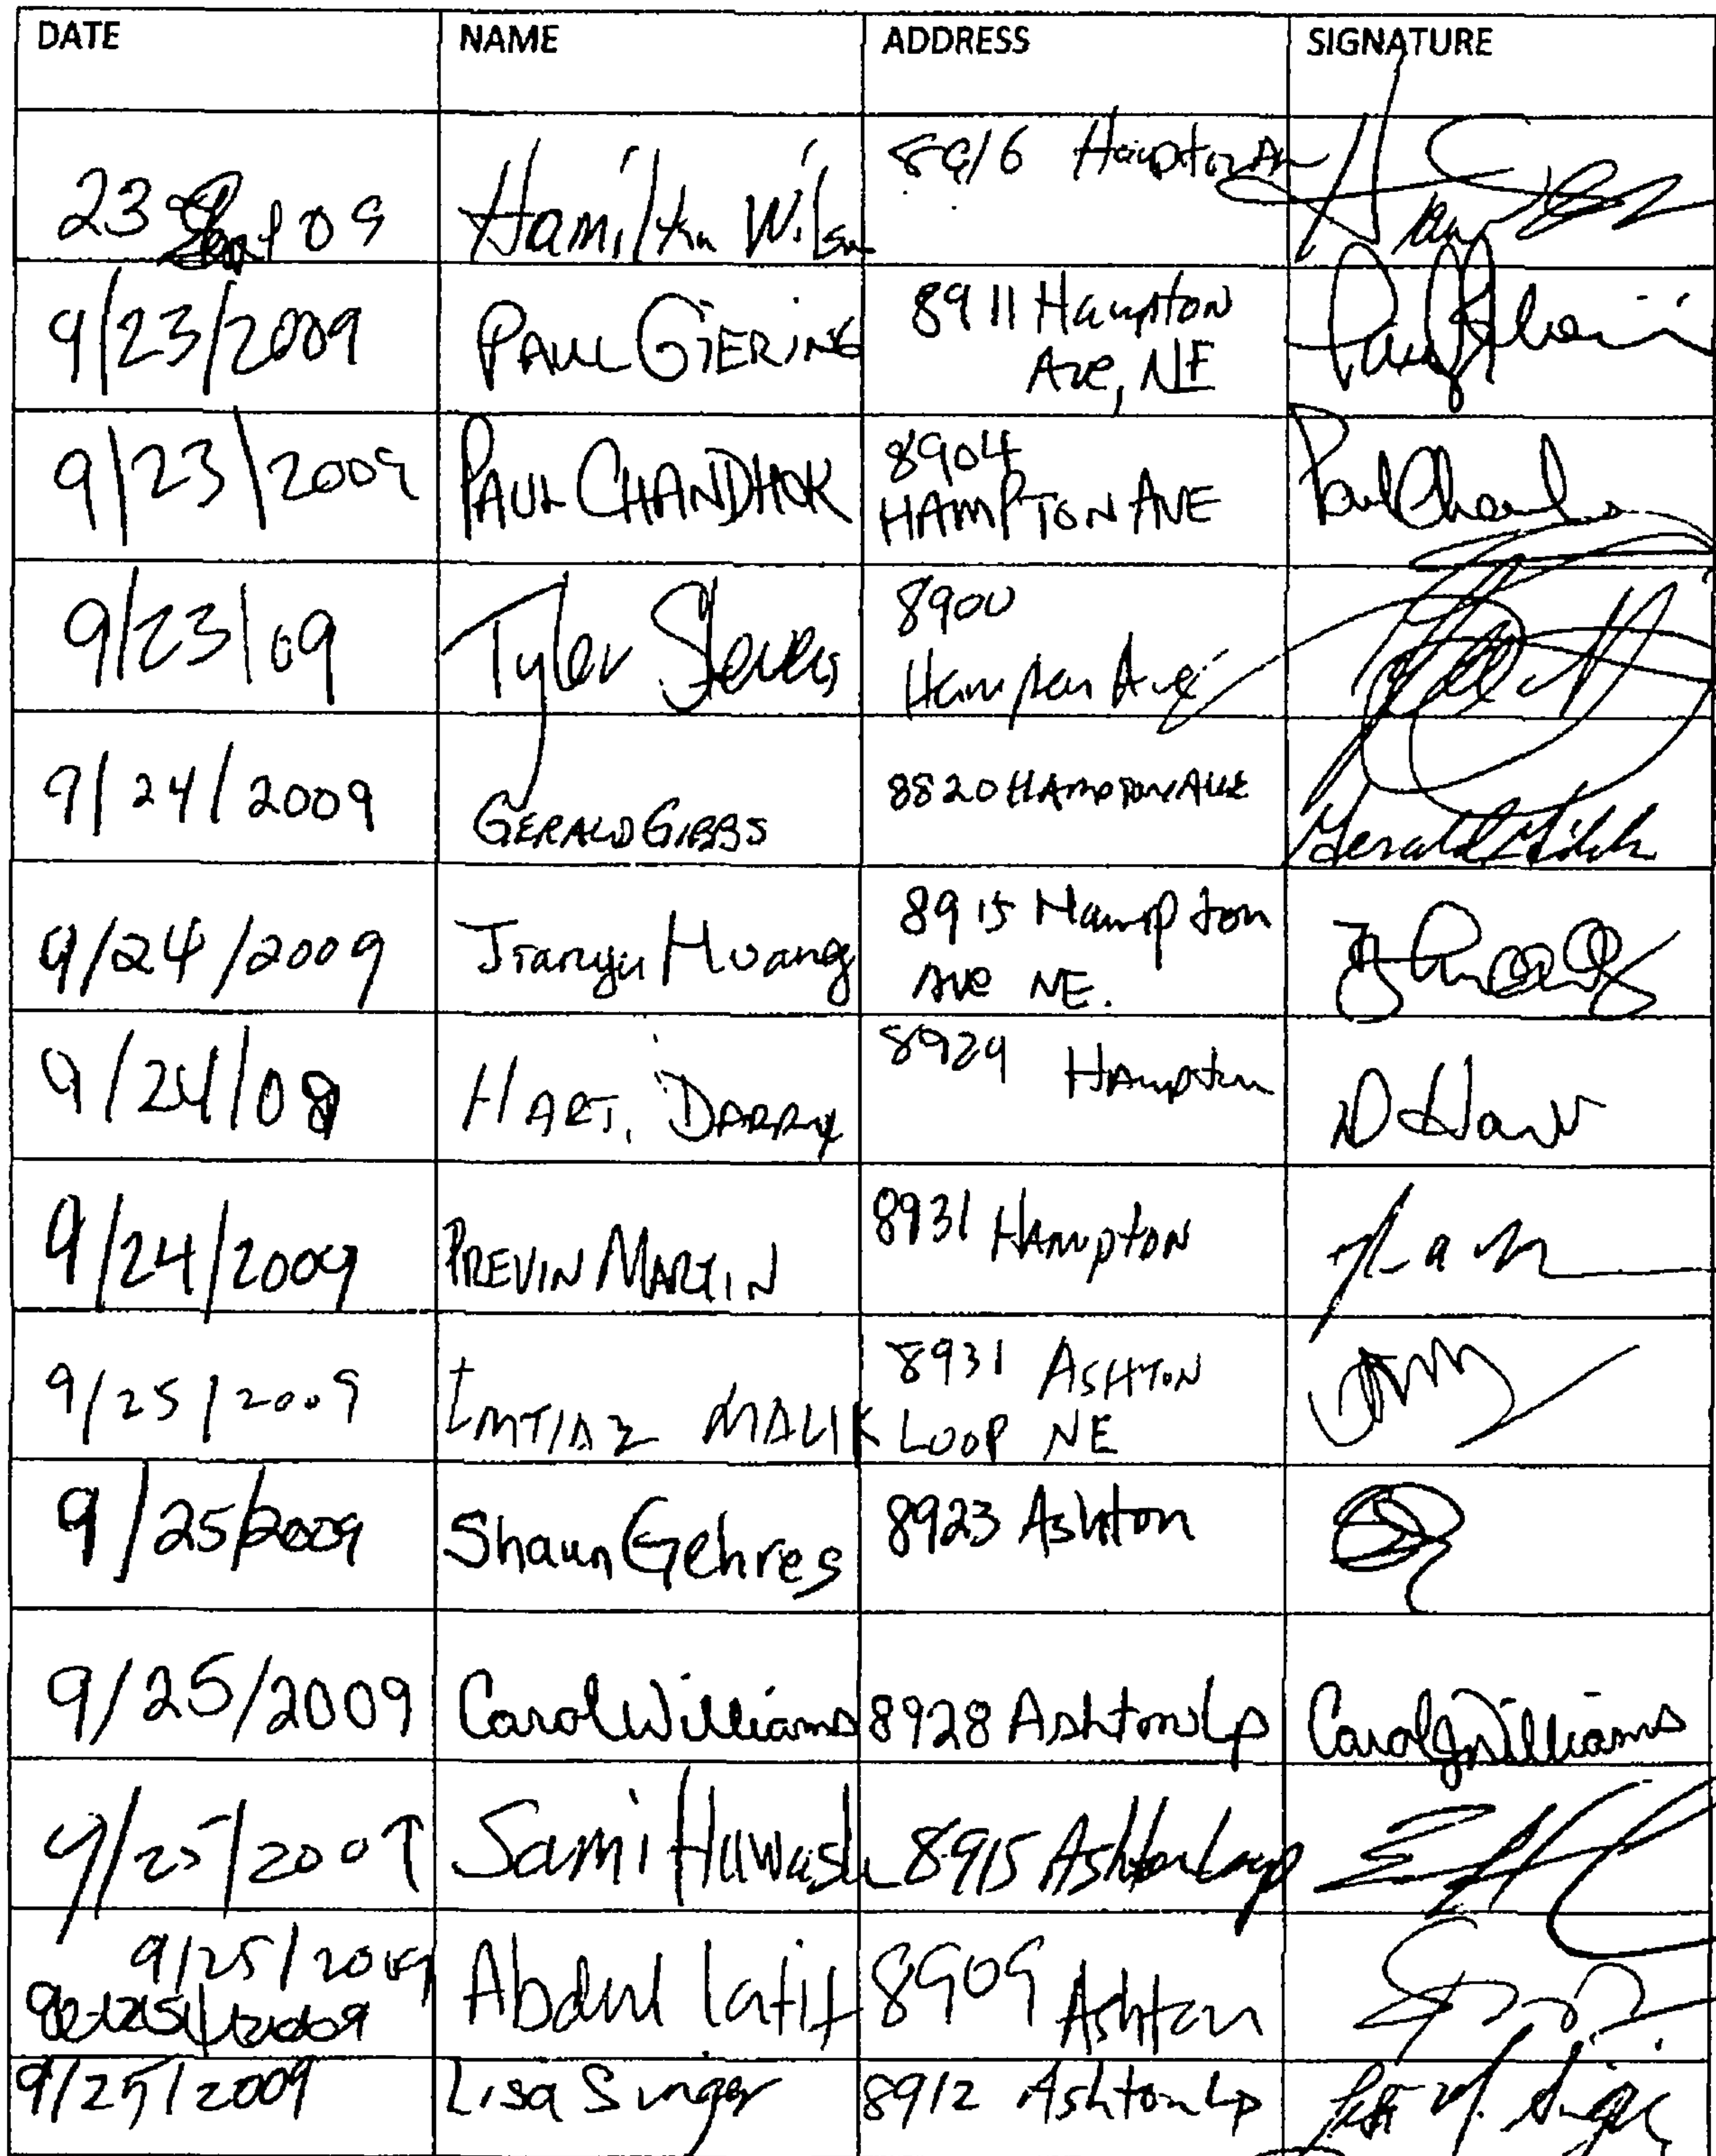 DATE NAME ADDRESS SIGNATURE
23 Sept 09 Hamilton Wilson 8916 Hampton Av
9/23/2009 PAUL GIERING 8911 Hampton
Ave, NE
9/23/2009 PAUL CHANDHOK 8904
HAMPTON AVE Paul
9/23/09 Tyler Stevens 8900
Hampton Ave
9/24/2009 GERALD GIBBS 8820 HAMPTON AVE Gerald Gibbs
9/24/2009 Jianyu Huang 8915 Hampton
Ave NE.
9/24/09 HART, DARRY 8929 Hampton D Hart
9/24/2009 PREVIN MARTIN 8931 HAMPTON
9/25/2009 IMTIAZ MALIK 8931 ASHTON
LOOP NE
9/25/2009 Shaun Gehres 8923 Ashton
9/25/2009 Carol Williams 8928 Ashton Lp Carol J Williams
9/25/2009 Sami Hawash 8915 Ashton Loop
9/25/2009
9/25/2009 Abdul latif 8909 Ashton
9/25/2009 Lisa Singer 8912 Ashton Lp